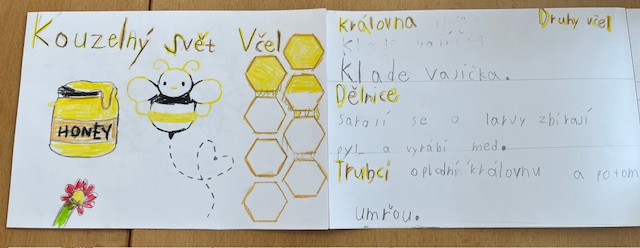 Kouzelný svět včel
HONEY
Královna
Druhy včel
Klade vajíčka.
Dělnice
starají se o larvy zbírají
pyl a vyrábí med.
Trubci oplodní královnu a potom
umřou.